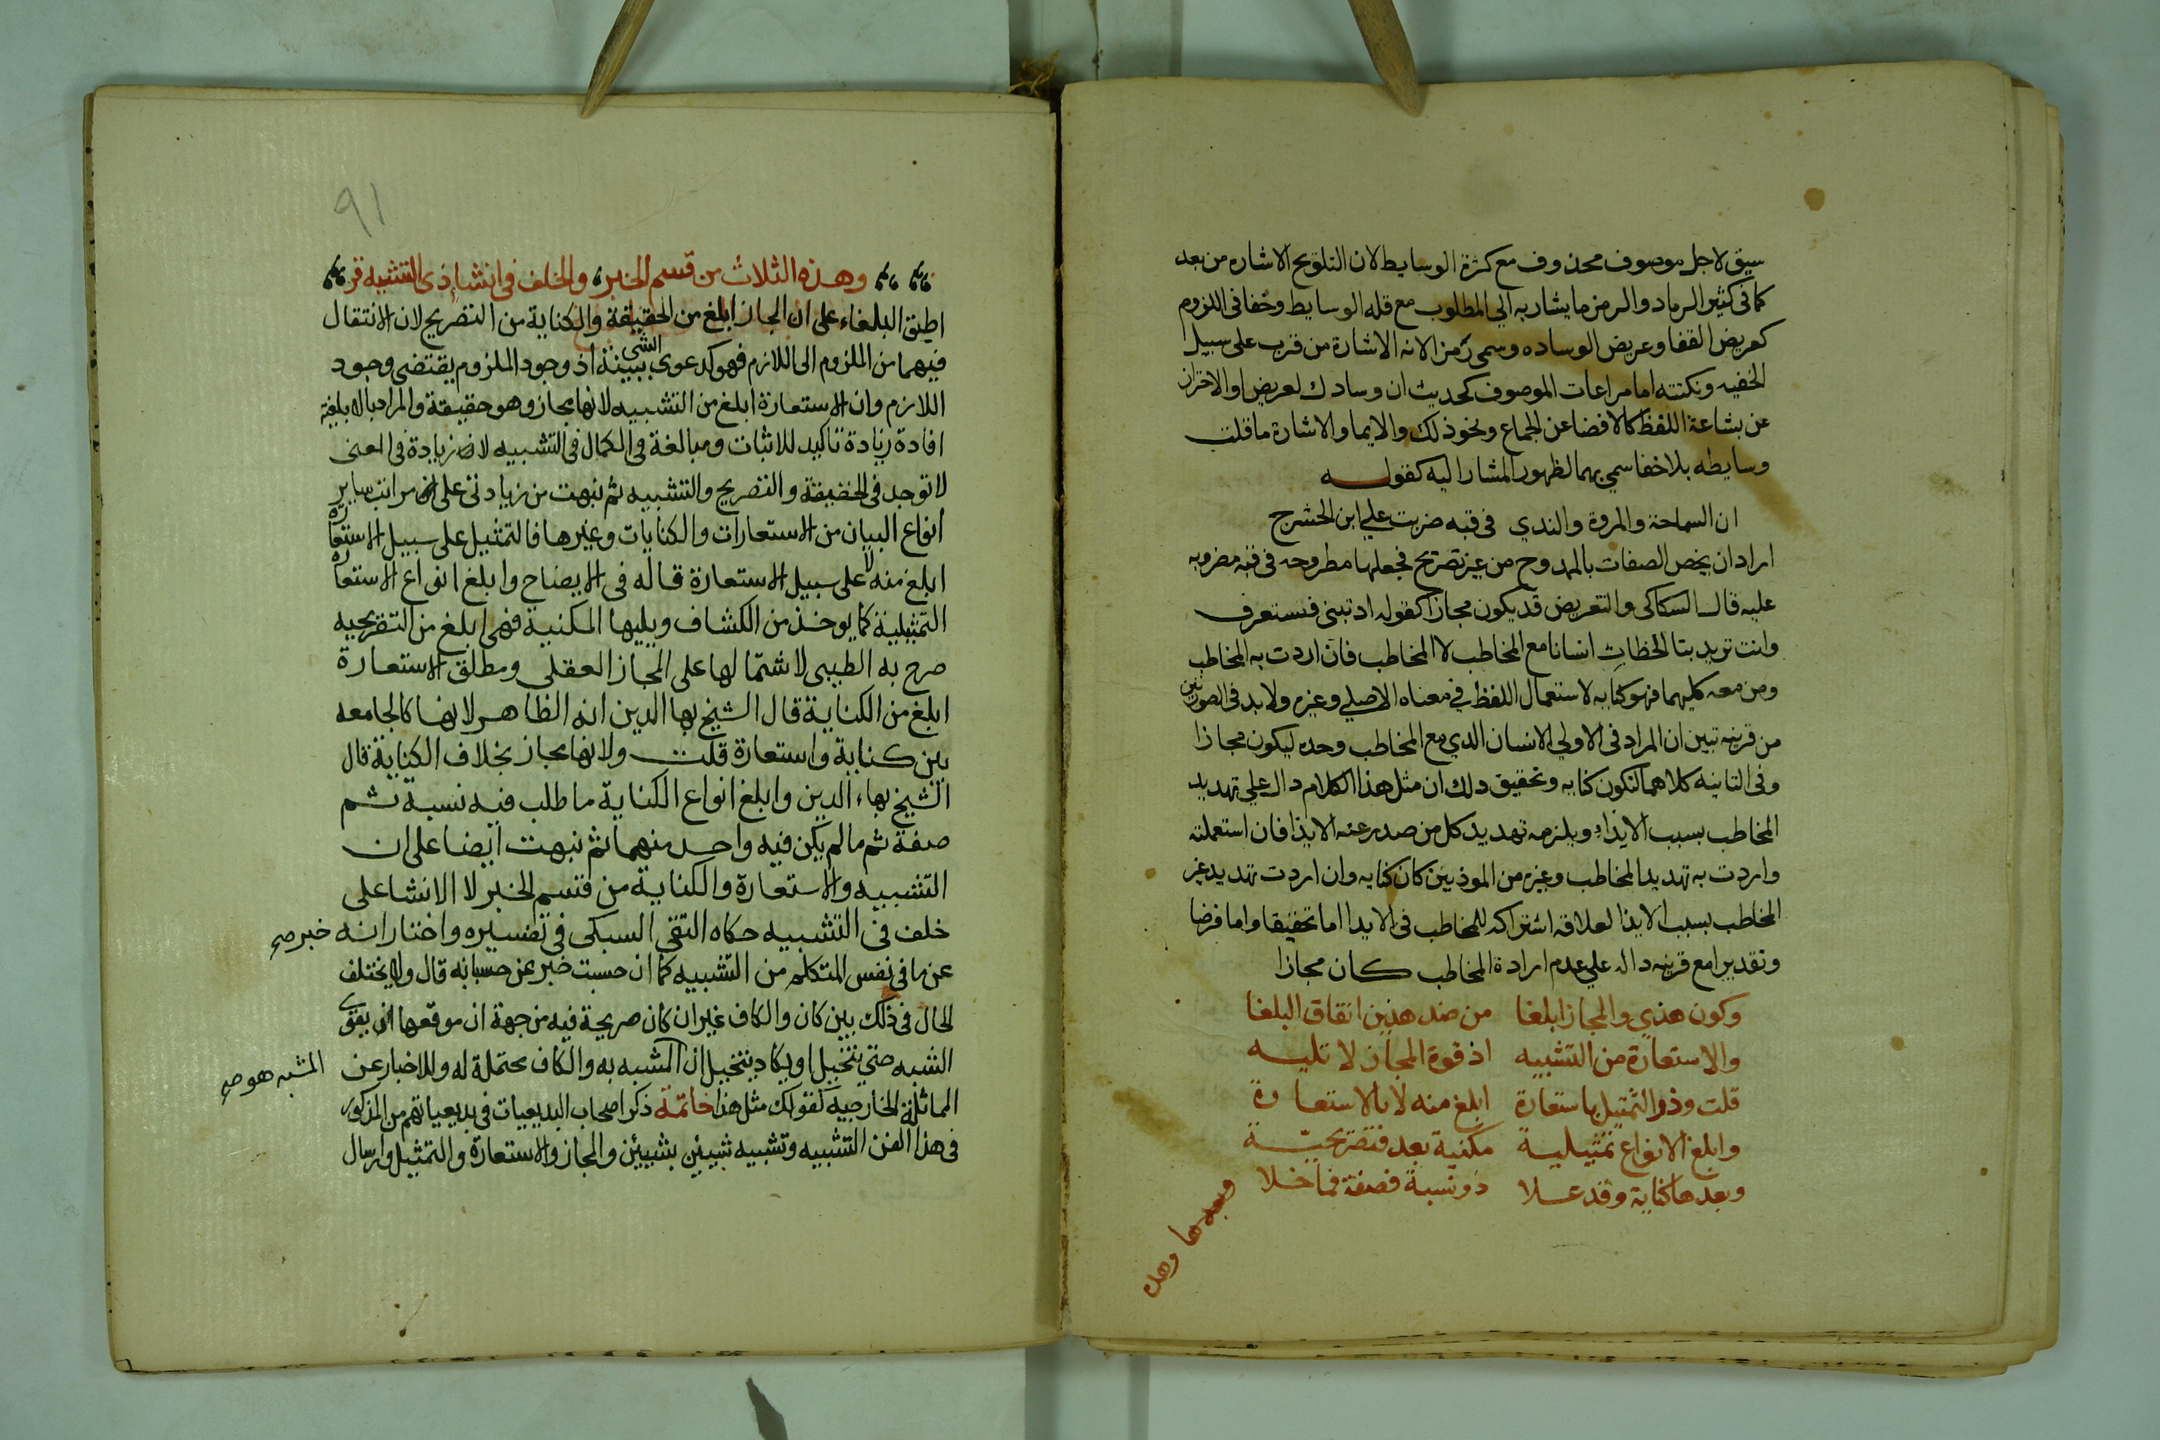 سيق لاجل موصوف محذوف مع كثرة الوسايط لان التلويح الاشاره من بعد
كما فى كثير الرماد والرمز ما يشار به الي المطلوب مع قله الوسايط وخفا فى اللزوم
كعريض القفا وعريض الوساده وسمي رمزا لانه الاشارة من قرب على سبيل
الخفيه ونكتته اما مراعات الموصوف كحديث ان وسادك لعريض او الاحتراز
عن بشاعة اللفظ كالافضا عن الجماع ونحو ذلك والايما والاشارة ما قلت
وسايطه بلا خفا سمي بهما لظهور المشار اليه كقوله
ان السماحة والمروة والندي فى قبه ضربت علي ابن الحشرج
اراد ان يخص الصفات بالممدوح من غير تصريح فجعلها مطروحه فى قبه مضروبه
عليه قال السكاكى والتعريض قد يكون مجازا كقوله اذتبنى فستعرف
وانت تريد بتا الخطاب انسانا مع المخاطب لا المخاطب فان اردت به المخاطب
ومن معه كليهما فهو كنايه لاستعمال اللفظ في معناه الاصلي وغيره ولا بد فى الصورتين
من قرينه تبين ان المراد فى الاولي الانسان الذي مع المخاطب وحده ليكون مجازا
وفى الثانيه كلاهما لتكون كنايه وتحقيق دلك ان مثل هذا الكلام دال علي تهديد
المخاطب بسبب الايذاء ويلزمه تهديد كل من صدر عنه الايذا فان استعملته
واردت به تهديد المخاطب وغيره من الموذيين كان كنايه وان اردت تهديد غير
المخاطب بسبب الايذا لعلاقه اشتراكه للمخاطب فى الايذا اما تحقيقا واما فرضا
وتقديرا مع قرينه داله علي عدم ارادة المخاطب كان مجازا
وكون هذي والمجاز ابلغا من ضد هذين اتفاق البلغا
والاستعارة من التشبيه اذ قوة المجاز لا تليه
قلت وذو التمثيل باستعارة ابلغ منه لا بالاستعارة
وابلغ الانواع تمثيلية مكنية بعد فتصريحية
وبعدها كناية وقد علا ذو نسبة فصفة فما خلا
وبعدها وهذه
٩١
وهذه الثلاث من قسم الخبر والخلف فى انشا ذى التشبيه قر
اطبق البلغاء على ان المجاز ابلغ من الحقيقة والكناية من التصريح لان الانتقال
فيهما من الملزوم الى اللازم فهو كدعوى الشى ببينة اذ وجود الملزوم يقتضى وجود
اللازم وان الاستعارة ابلغ من التشبيه لانها مجاز وهو حقيقة والمراد بالابلغية
افادة زيادة تاكيد للاثبات ومبالغة فى الكمال فى التشبيه لا زيادة فى المعنى
لا توجد فى الحقيقة والتصريح والتشبيه ثم نبهت من زيادتى على مراتب ساير
انواع البيان من الاستعارات والكنايات وغيرها فالتمثيل على سبيل الاستعارة
ابلغ منه لا على سبيل الاستعارة قاله فى الايضاح وابلغ انواع الاستعارة
التمثيلية كما يوخذ من الكشاف ويليها المكنية فهى ابلغ من التصريحيه
صرح به الطيبى لاشتمالها على المجاز العقلى ومطلق الاستعارة
ابلغ من الكناية قال الشيخ بها الدين انه الظاهر لانها كالجامعه
بين كناية واستعارة قلت ولانها مجاز بخلاف الكناية قال
الشيخ بهاء الدين وابلغ انواع الكناية ما طلب فيه نسبة ثم
صفة ثم ما لم يكن فيه واحد منهما ثم نبهت ايضا على ان
التشبيه والاستعارة والكناية من قسم الخبر لا الانشا على
خلف فى التشبيه حكاه التقى السبكى فى تفسيره واختار انه خبر صح
عن ما فى نفس المتكلم من التشبيه كما ان حسبت خبر عن حسبانه قال ولا يختلف
الحال فى ذلك بين كان والكاف غير ان كان صريحة فيه من جهة ان موقعها ان يقوى
الشبه حتى يتخيل او يكاد يتخيل ان المشبه به والكاف محتملة له وللاخبار عن
المشبه هو صح
المماثلة الخارجية كقولك مثل هذا خاتمة ذكر اصحاب البديعيات فى بديعياتهم من المذكور
فى هذا الفن التشبيه وتشبيه شيئين بشيئين والمجاز والاستعارة والتمثيل وارسال